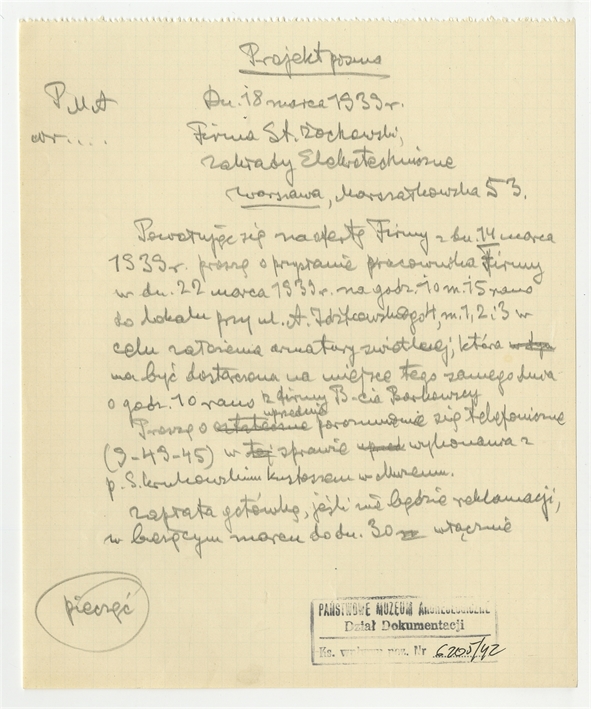 Projekt pisma
P M A
Dn. 18 marca 1939 r.
nr....
Firma St. Żochowski,
Zakłady Elektrotechniczne
Warszawa, Marszałkowska 53.
Powołując się na ofertę Firmy z dn. 14 marca
1939 r. proszę o przysłanie pracownika Firmy
w dn. 22 marca 1939 r. na godz. 10 m. 15 rano
do lokalu przy ul. A. 4, m. 1, 2 i 3 w
celu założenia armatury świetlnej, która
ma być dostarczona na miejsce tego samego dnia
o godz. 10 rano z firmy B-cia Borkowscy
uprzednie
Proszę o porozumienie się telefoniczne
(9-49-45) w tej sprawie wykonawa z
p. S. Krukowskim kustoszem w Muzeum.
Zapłata gotówką, jeśli nie będzie reklamacji,
w bieżącym marcu do dn. 30 włącznie
pieczęć
PAŃSTWOWE MUZEUM ARCHEOLOGICZNE
Dział Dokumentacji
Ks. wpływu poz. Nr 6200/42